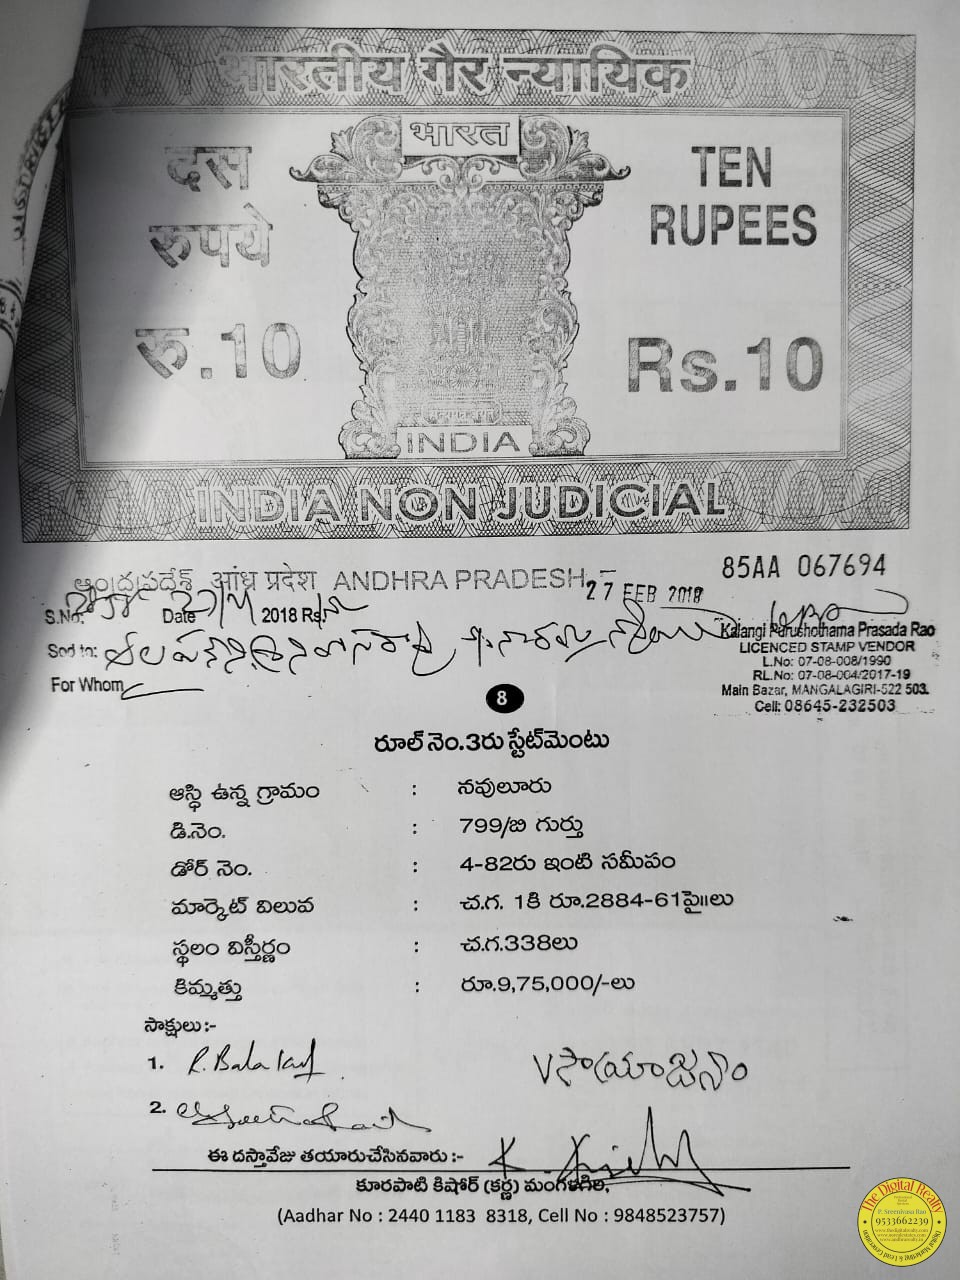 भारतीय गैर न्यायिक
भारत
दस
रुपये
रु.10
TEN
RUPEES
Rs.10
सत्यमेव जयते
INDIA
INDIA NON JUDICIAL
ఆంధ్రప్రదేశ్ आंध्र प्रदेश ANDHRA PRADESH
85AA 067694
27 FEB 2018
S.No. Date 2018 Rs.
Sod to:
For Whom
Kalangi Purushothama Prasada Rao
LICENCED STAMP VENDOR
L.No: 07-08-008/1990
RL.No: 07-08-004/2017-19
Main Bazar, MANGALAGIRI-522 503.
Cell: 08645-232503
8
రూల్ నెం.3రు స్టేట్‌మెంటు
ఆస్థి ఉన్న గ్రామం : నవులూరు
డి.నెం. : 799/బి గుర్తు
డోర్ నెం. : 4-82రు ఇంటి సమీపం
మార్కెట్ విలువ : చ.గ. 1కి రూ.2884-61పై॥లు
స్థలం విస్తీర్ణం : చ.గ.338లు
కిమ్మత్తు : రూ.9,75,000/-లు
సాక్షులు :-
1. R. Bala
2.
ఈ దస్తావేజు తయారుచేసినవారు :-
కూరపాటి కిషోర్ (కర్ణ) మంగళగిరి,
(Aadhar No : 2440 1183 8318, Cell No : 9848523757)
The Digital Realty
P. Sreenivasa Rao
9533662239
Digital Marketing & Lead Generation